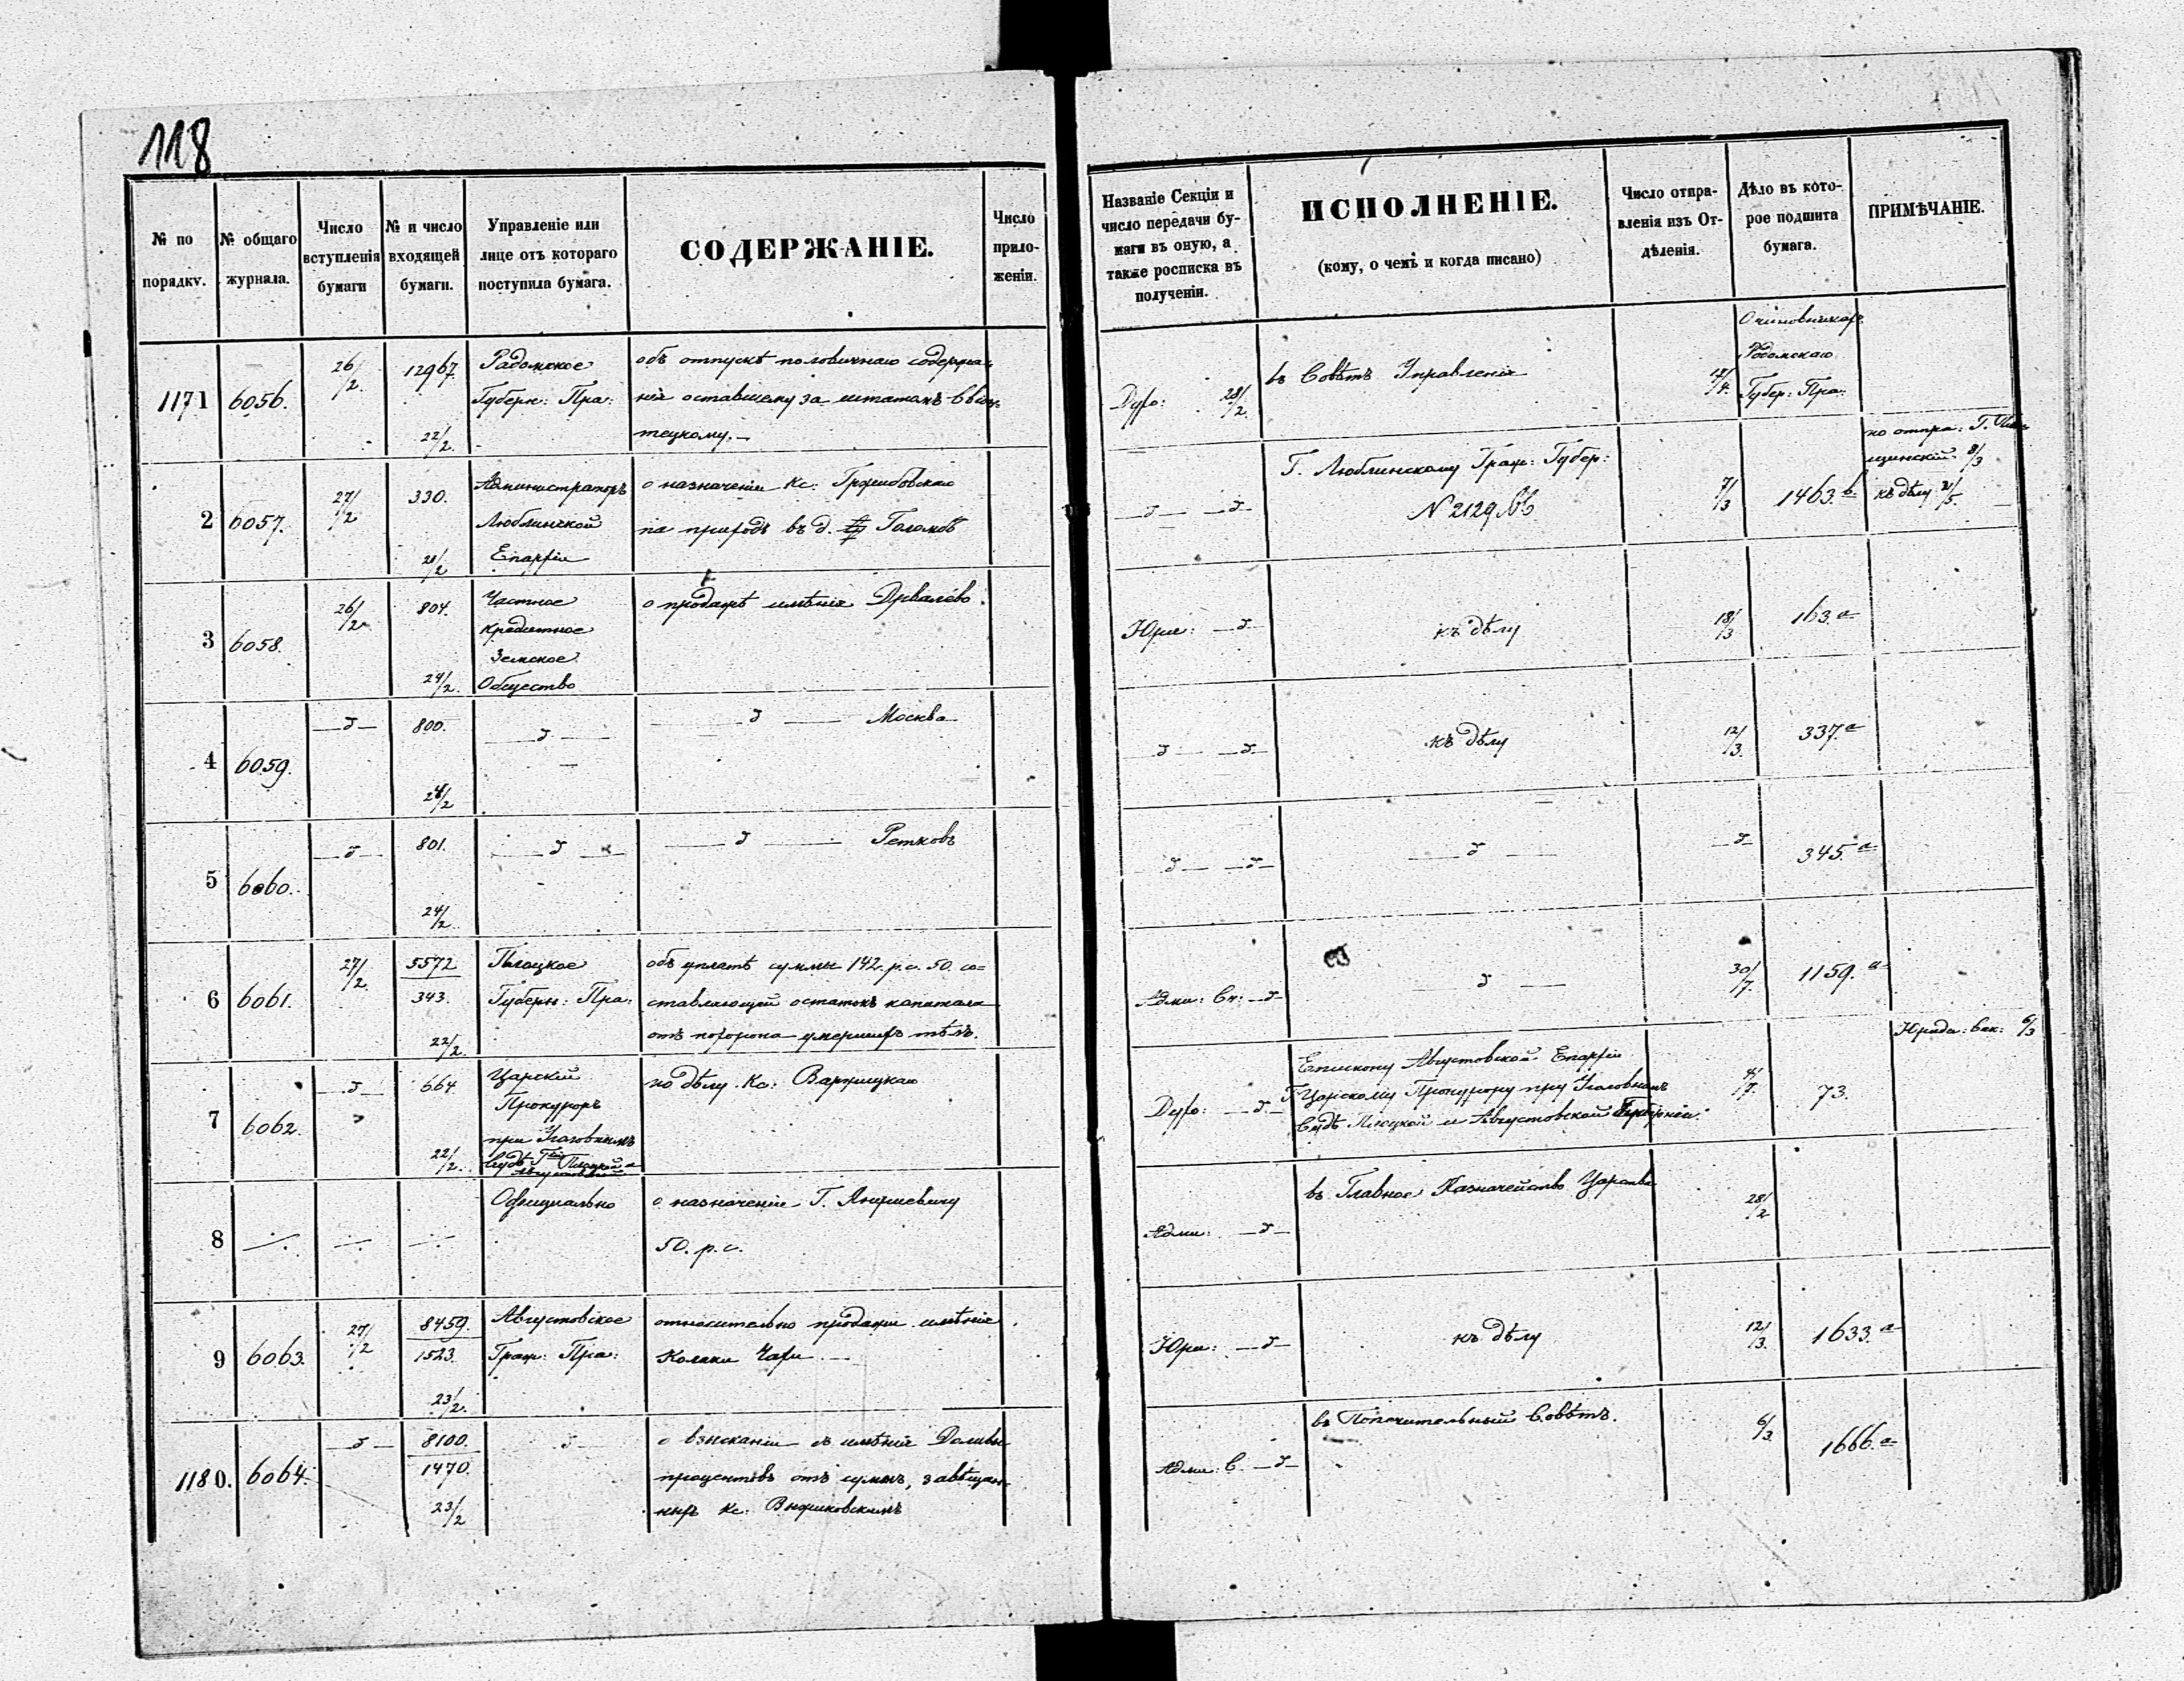 118
№ по порядку.
№ общаго журнала.
Число вступленія бумаги
№ и число входящей бумаги.
Управленіе или лице отъ котораго поступила бумага.
СОДЕРЖАНІЕ.
Число приложеніи.
Названіе Секціи и число передачи бумаги въ оную, а также росписка въ полученіи.
ИСПОЛНЕНІЕ.
(кому, о чемъ и когда писано)
Число отправленія изъ Отдѣленія.
Дѣло въ которое подшита бумага.
ПРИМѢЧАНІЕ.
1171 6056. 26/2. 12967. 22/2.
Радомское
Губерн: Пра:
объ отпускѣ половичнаго содержа-
нія оставшему за штатомъ
Духо: 28/2.
въ Совѣтъ Управленія
Радомскаго
Губер: Пра:
2 6057. 27/2 330.
Администраторъ
Люблинской
Епархіи
о назначеніи Кс: Гржибовскаго
на приходъ въ д.
Г. Люблинскому Граж: Губер:
N 2129
7/3 1463. b
къ дѣлу
3 6058. 26/2 804. 24/2.
Частное
кредитное
Земское
Общество
о продажѣ имѣнія Дрвалево.
Юри: — д —
къ дѣлу
18/3 163. a
4 6059. — д — 800. 24/2
— д —
— д — Москва
— д — — д —
къ дѣлу
12/3. 337. a
5 6060. — д — 801. 24/2.
— д —
— д — Ретковъ
— д — — д —
— д —
— д — 345. a
6 6061. 27/2. 5572 343. 22/2.
Плоцкое
Губерн: Пра:
объ уплатѣ суммы 142. р. с. 50. со=
ставляющей остатокъ капитала
отъ похорона умершихъ тѣлъ.
Адми: Ск: — д —
— д —
30/7. 1159. a
7 6062. — д — 664 22/2.
Царскій
Прокуроръ
при Уголовномъ
Судѣ
по дѣлу Кс:
Духо: — д —
Епископу Августовской Епархіи
Г Царскому Прокурору при Уголовномъ
Судѣ Плоцкой и Августовской Губерніи.
73.
8
Официально
о назначеніи Г. Янушевичу
50. р. с.
Адми: — д —
въ Главное Казначейство Царства
28/2
9 6063. 27/2 8459. 1523. 23/2.
Августовское
Граж: Пра:
относительно продажи имѣнія
Колаки
Юри: — д —
къ дѣлу
12/3. 1633. a
1180. 6064. — д — 8100. 1470. 23/2
— д —
о взысканіи съ имѣнія
процентовъ отъ суммъ, завѣщан-
ныхъ Кс.
Адми: С. — д —
въ Попечительный Совѣтъ.
6/3 1666. a